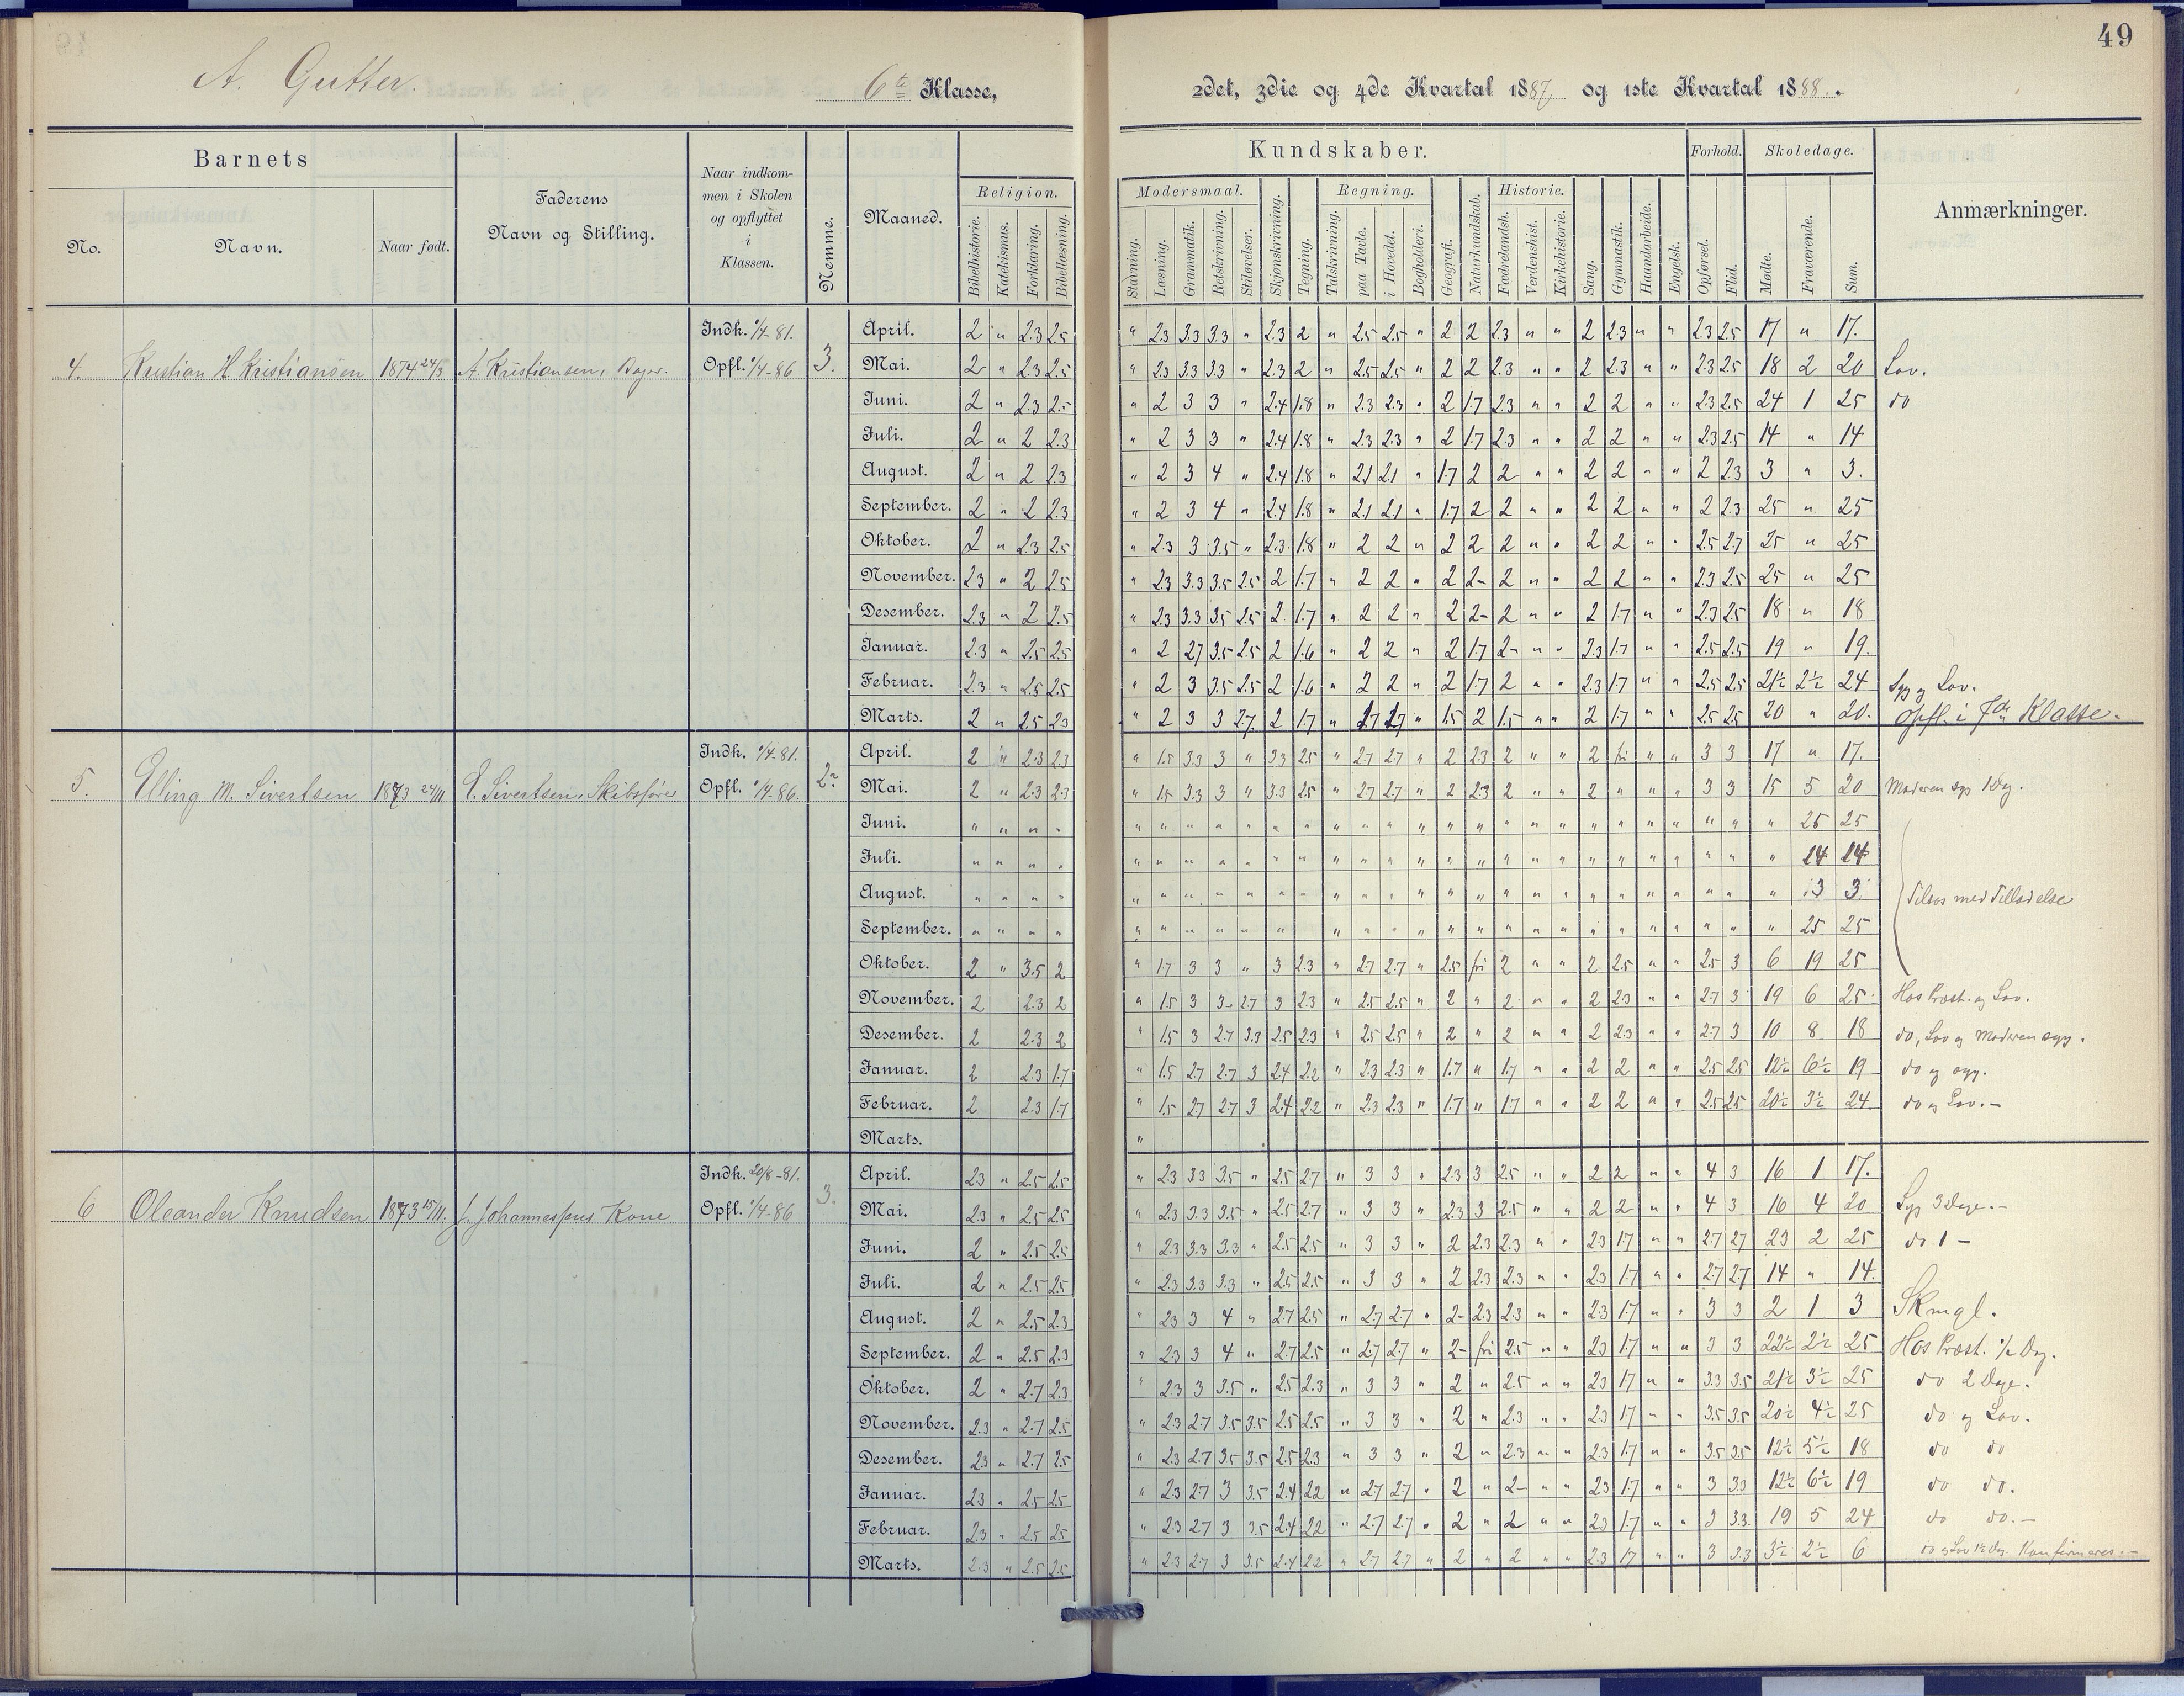 49
A. Gutter. 6te Klasse, 2det, 3die og 4de Kvartal 1887, og 1ste Kvartal 1888.
Barnets
No.
Navn.
Naar født.
Faderens
Navn og Stilling.
Naar indkom-
men i Skolen
og opflyttet
i
Klassen.
Nemme.
Maaned.
Kundskaber.
Religion.
Bibelhistorie.
Katekismus.
Forklaring.
Bibellæsning.
Modersmaal.
Stavning.
Læsning.
Grammatik.
Retskrivning.
Stiløvelser.
Skjønskrivning.
Tegning.
Regning.
Talskrivning.
paa Tavle.
i Hovedet.
Bogholderi.
Geografi.
Naturkundskab.
Historie.
Fædrelandsh.
Verdenshist.
Kirkehistorie.
Sang.
Gymnastik.
Haandarbeide.
Engelsk.
Forhold.
Opførsel.
Flid.
Skoledage.
Mødte.
Fraværende.
Sum.
Anmærkninger.
4. Kristian H. Kristiansen 1874 24/3 A. Kristiansen, Bager. Indk. 1/4-81. Opfl. 1/4-86 3.
April. 2 " 2.3 2.5 " 2.3 3.3 3.3 " 2.3 2 " 2.5 2.5 " 2 2 2.3 " " 2 2.3 " " 2.3 2.5 17 " 17.
Mai. 2 " 2.3 2.5 " 2.3 3.3 3.3 " 2.3 2 " 2.5 2.5 " 2 2 2.3 " " 2 2.3 " " 2.3 2.5 18 2 20 Lov.
Juni. 2 " 2.3 2.5 " 2 3 3 " 2.4 1.8 " 2.3 2.3 " 2 1.7 2.3 " " 2 2 " " 2.3 2.5 24 1 25 do
Juli. 2 " 2 2.3 " 2 3 3 " 2.4 1.8 " 2.3 2.3 " 2 1.7 2.3 " " 2 2 " " 2.3 2.5 14 " 14
August. 2 " 2 2.3 " 2 3 4 " 2.4 1.8 " 2.1 2.1 " 1.7 2 2 " " 2 2 " " 2 2.3 3 " 3.
September. 2 " 2 2.3 " 2 3 4 " 2.4 1.8 " 2.1 2.1 " 1.7 2 2 " " 2 2 " " 2 2.3 25 " 25
Oktober. 2 " 2.3 2.5 " 2.3 3 3.5 " 2.3 1.8 " 2 2 " 2 2 2 " " 2 2 " " 2.5 2.7 25 " 25
November. 2.3 " 2 2.5 " 2.3 3.3 3.5 2.5 2 1.7 " 2 2 " 2 2- 2 " " 2 2 " " 2.3 2.5 25 " 25
Desember. 2.3 " 2 2.5 " 2.3 3.3 3.5 2.5 2 1.7 " 2 2 " 2 2- 2 " " 2 1.7 " " 2.3 2.5 18 " 18
Januar. 2.3 " 2.5 2.5 " 2 2.7 3.5 2.5 2 1.6 " 2 2 " 2 1.7 2- " " 2.3 1.7 " " 2.5 2.5 19 " 19.
Februar. 2.3 " 2.5 2.5 " 2 3 3.5 2.5 2 1.6 " 2 2 " 2 1.7 2 " " 2.3 1.7 " " 2.5 2.5 21½ 2½ 24 Syg og Lov.
Marts. 2 " 2.5 2.3 " 2 3 3 2.7. 2 1.7 " 1.7 1.7 " 1.5 2 1.5 " " 2 1.7 " " 2.5 2.5 20 " 20. Opfl. i 7de Klasse.
5. Elling M. Sivertsen 1873 24/11 E. Sivertsen, Skibsfører Indk. 1/4-81. Opfl. 1/4-86. 2.
April. 2 " 2.3 2.3 " 1.5 3.3 3 " 3.3 2.5 " 2.7 2.7 " 2 2.3 2 " " 2 fri " " 3 3 17 " 17.
Mai. 2 " 2.3 2.3 " 1.5 3.3 3 " 3.3 2.5 " 2.7 2.7 " 2 2.3 2 " " 2 " " " 3 3 15 5 20 Moderen syg 1 Dag.
Juni. " " " " " " " " " " " " " " " " " " " " " " " " " " " 25 25
Juli. " " " " " " " " " " " " " " " " " " " " " " " " " " " 14 14
August. " " " " " " " " " " " " " " " " " " " " " " " " " " " 3 3
Tilsøs med Tilladelse
September. " " " " " " " " " " " " " " " " " " " " " " " " " " " 25 25
Oktober. 2 " 3.5 2 " 1.7 3 3 " 3 2.3 " 2.7 2.7 " 2.5 fri 2 " " 2 2.5 " " 2.5 3 6 19 25
November. 2 2.3 2 " 1.5 3 3- 2.7 3 2.3 " 2.5 2.5 " 2 " 2 " " 2 2.3 " " 2.7 3 19 6 25 Hos Præst. og Lov.
Desember. 2 2.3 2 " 1.5 3 2.7 3.3 2.5 2.3 " 2.5 2.5 " 2 " 2 " " 2 2.3 " " 2.7 3 10 8 18 do, Lov og Moderen syg.
Januar. 2 2.3 1.7 " 1.5 2.7 2.7 3 2.4 2.2 " 2.3 2.3 " 1.7 " 1.7 " " 2 2 " " 2.5 2.5 12½ 6½ 19 do og syg.
Februar. 2 2.3 1.7 " 1.5 2.7 2.7 3 2.4 2.2 " 2.3 2.3 " 1.7 " 1.7 " " 2 2 " " 2.5 2.5 20½ 3½ 24 do og Lov.-
Marts. "
6 Oleander Knudsen 1873 15/11. J. Johannesens Kone Indk. 20/8-81. Opfl. 1/4-86 3.
April. 2.3 " 2.5 2.5 " 2.3 3.3 3.5 " 2.5 2.7 " 3 3 " 2.3 3 2.5 " " 2 2 " " 4 3 16 1 17.
Mai. 2.3 " 2.5 2.5 " 2.3 3.3 3.5 " 2.5 2.7 " 3 3 " 2.3 3 2.5 " " 2 2 " " 4 3 16 4 20 Syg 3 Dage.-
Juni. 2 " 2.5 2.5 " 2.3 3.3 3.3 " 2.5 2.5 " 3 3 " 2 2.3 2.3 " " 2.3 1.7 " " 2.7 2.7 23 2 25 do 1 -
Juli. 2 " 2.5 2.5 " 2.3 3.3 3.3 " 2.5 2.5 " 3 3 " 2 2.3 2.3 " " 2.3 1.7 " " 2.7 2.7 14 " 14.
August. 2 " 2.5 2.3 " 2.3 3 4 " 2.7 2.5 " 2.7 2.7 " 2- 2.3 2.3 " " 2.3 1.7 " " 3 3 2 1 3 Skmgl.
September. 2 " 2.5 2.3 " 2.3 3 4 " 2.7 2.5 " 2.7 2.7 " 2- fri 2.5 " " 2.3 1.7 " " 3 3 22½ 2½ 25 Hos Præst. ½ Dag.
Oktober. 2 " 2.7 2.3 " 2.3 3 3.5 " 2.5 2.3 " 3 3 " 2 " 2.5 " " 2.3 1.7 " " 3.3 3.5 21½ 3½ 25 do 2 Dage.
November. 2.3 " 2.7 2.5 " 2.3 2.7 3.5 3.5 2.5 2.5 " 3 3 " 2 " 2.3 " " 2.3 1.7 " " 3.5 3.5 20½ 4½ 25 do og Lov.
Desember. 2.3 " 2.7 2.5 " 2.3 2.7 3.5 3.5 2.5 2.3 " 3 3 " 2 " 2.3 " " 2.3 1.7 " " 3.5 3.5 12½ 5½ 18 do do
Januar. 2.3 " 2.5 2.5 " 2.3 2.7 3 3.5 2.4 2.2 " 2.7 2.7 " 2 " 2- " " 2.3 1.7 " " 3 3.3 12½ 6½ 19 do do.
Februar. 2.3 " 2.5 2.5 " 2.3 2.7 3 3.5 2.4 2.2 " 2.7 2.7 " 2 " 2 " " 2.3 1.7 " " 3 3.3. 19 5 24 do do.-
Marts. 2.3 " 2.5 2.5 " 2.3 2.7 3 3.5 2.4 2.2 " 2.7 2.7 " 2 " 2 " " 2.3 1.7 " " 3 3.3 3½ 2½ 6 do og Lov 1½ Dag. Konfirmeres.-